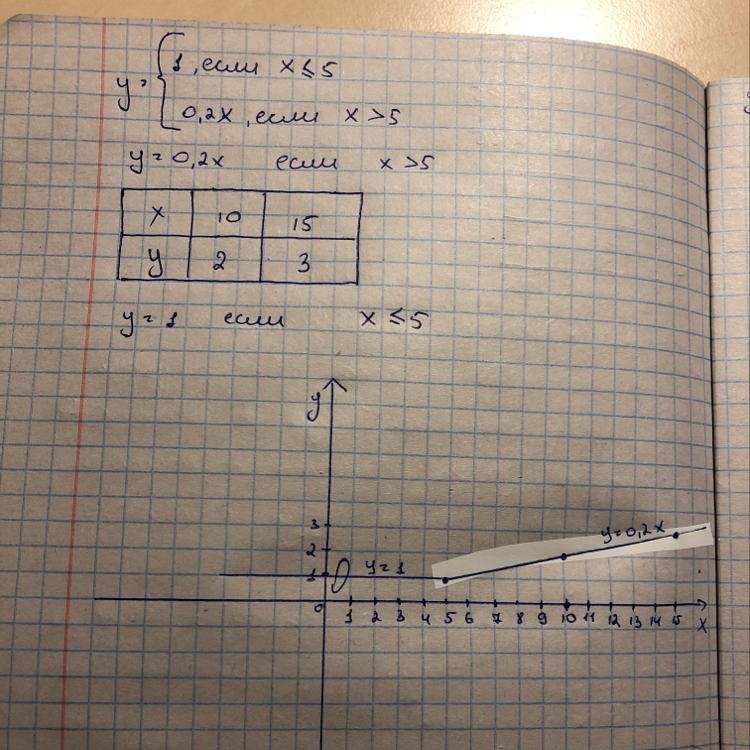 y = { 1, если x ≤ 5
0,2x, если x > 5
y = 0,2x если x > 5
x 10 15
y 2 3
y = 1 если x ≤ 5
y
3
2
y=0,2x
1 y=1
0 1 2 3 4 5 6 7 8 9 10 11 12 13 14 15 x